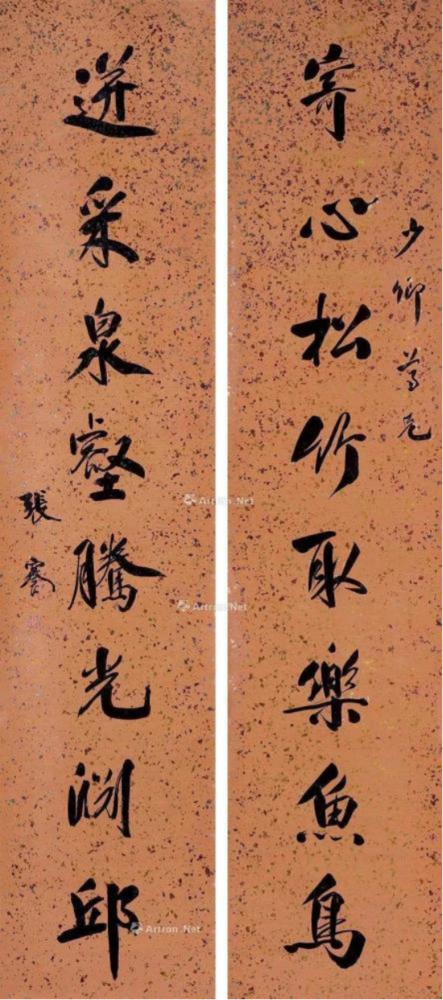 少卿尊兄
寄心松竹取樂魚鳥
迸采泉壑騰光淵邱
張謇
Artron.Net
Artron.Net
Artron.Net